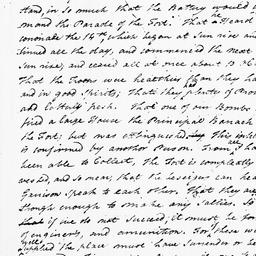 tand, in so much that the Battery would
mand the Parade of the Fort. That he heard
cannonade the 14th which began at Sun rise and
tinued all the day, and commenced the next
Sun rise, and ceased all at once about 12 o'Cl
That the Troops were healthier than they ha
and in good Spirits; That they had plenty of Provi
and fresh. That one of our Bombs
fired a Large House the Principal Barrack
the Fort: but was extinguished. This intel
is confirmed by another Person. From all I ha
been able to Collect, The Fort is compleatly
vested, and so near, that the Beseigers can hea
Garison speak to each other. That they are
strong enough to make any Sallies. So
if we do not Succeed, it must be for
of engineers, and ammunition. For these w
supplied the place must have Surrender'd be